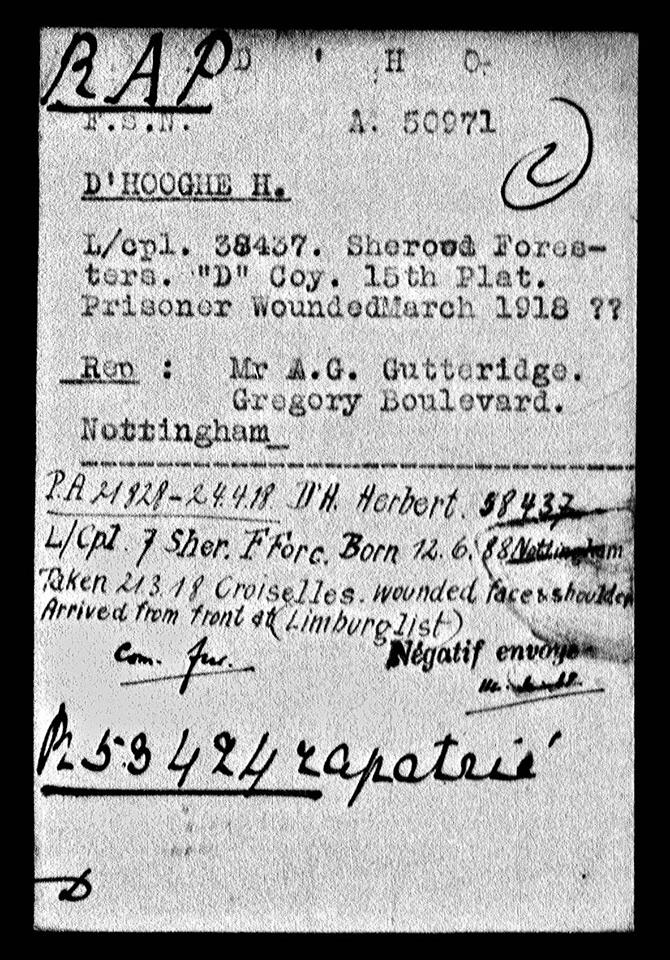 RAP D ' H O.
F.S.N. A. 50971
2
D'HOOGHE H.
L/cpl. 38437. Sherowd Fores-
ters. "D" Coy. 15th Plat.
Prisoner WoundedMarch 1918 ??
Rep : Mr A.G. Gutteridge.
Gregory Boulevard.
Nottingham_
P.A 21928-24.4.18. D'H. Herbert. 58437
L/Cpl. 7 Sher. F Forc. Born 12.6.88 Nottingham
Taken 21.3.18 Croiselles. wounded face & shoulder
Arrived from front at (Limburg list)
Com. Négatif envoyé
R. 53424 rapatrié
D